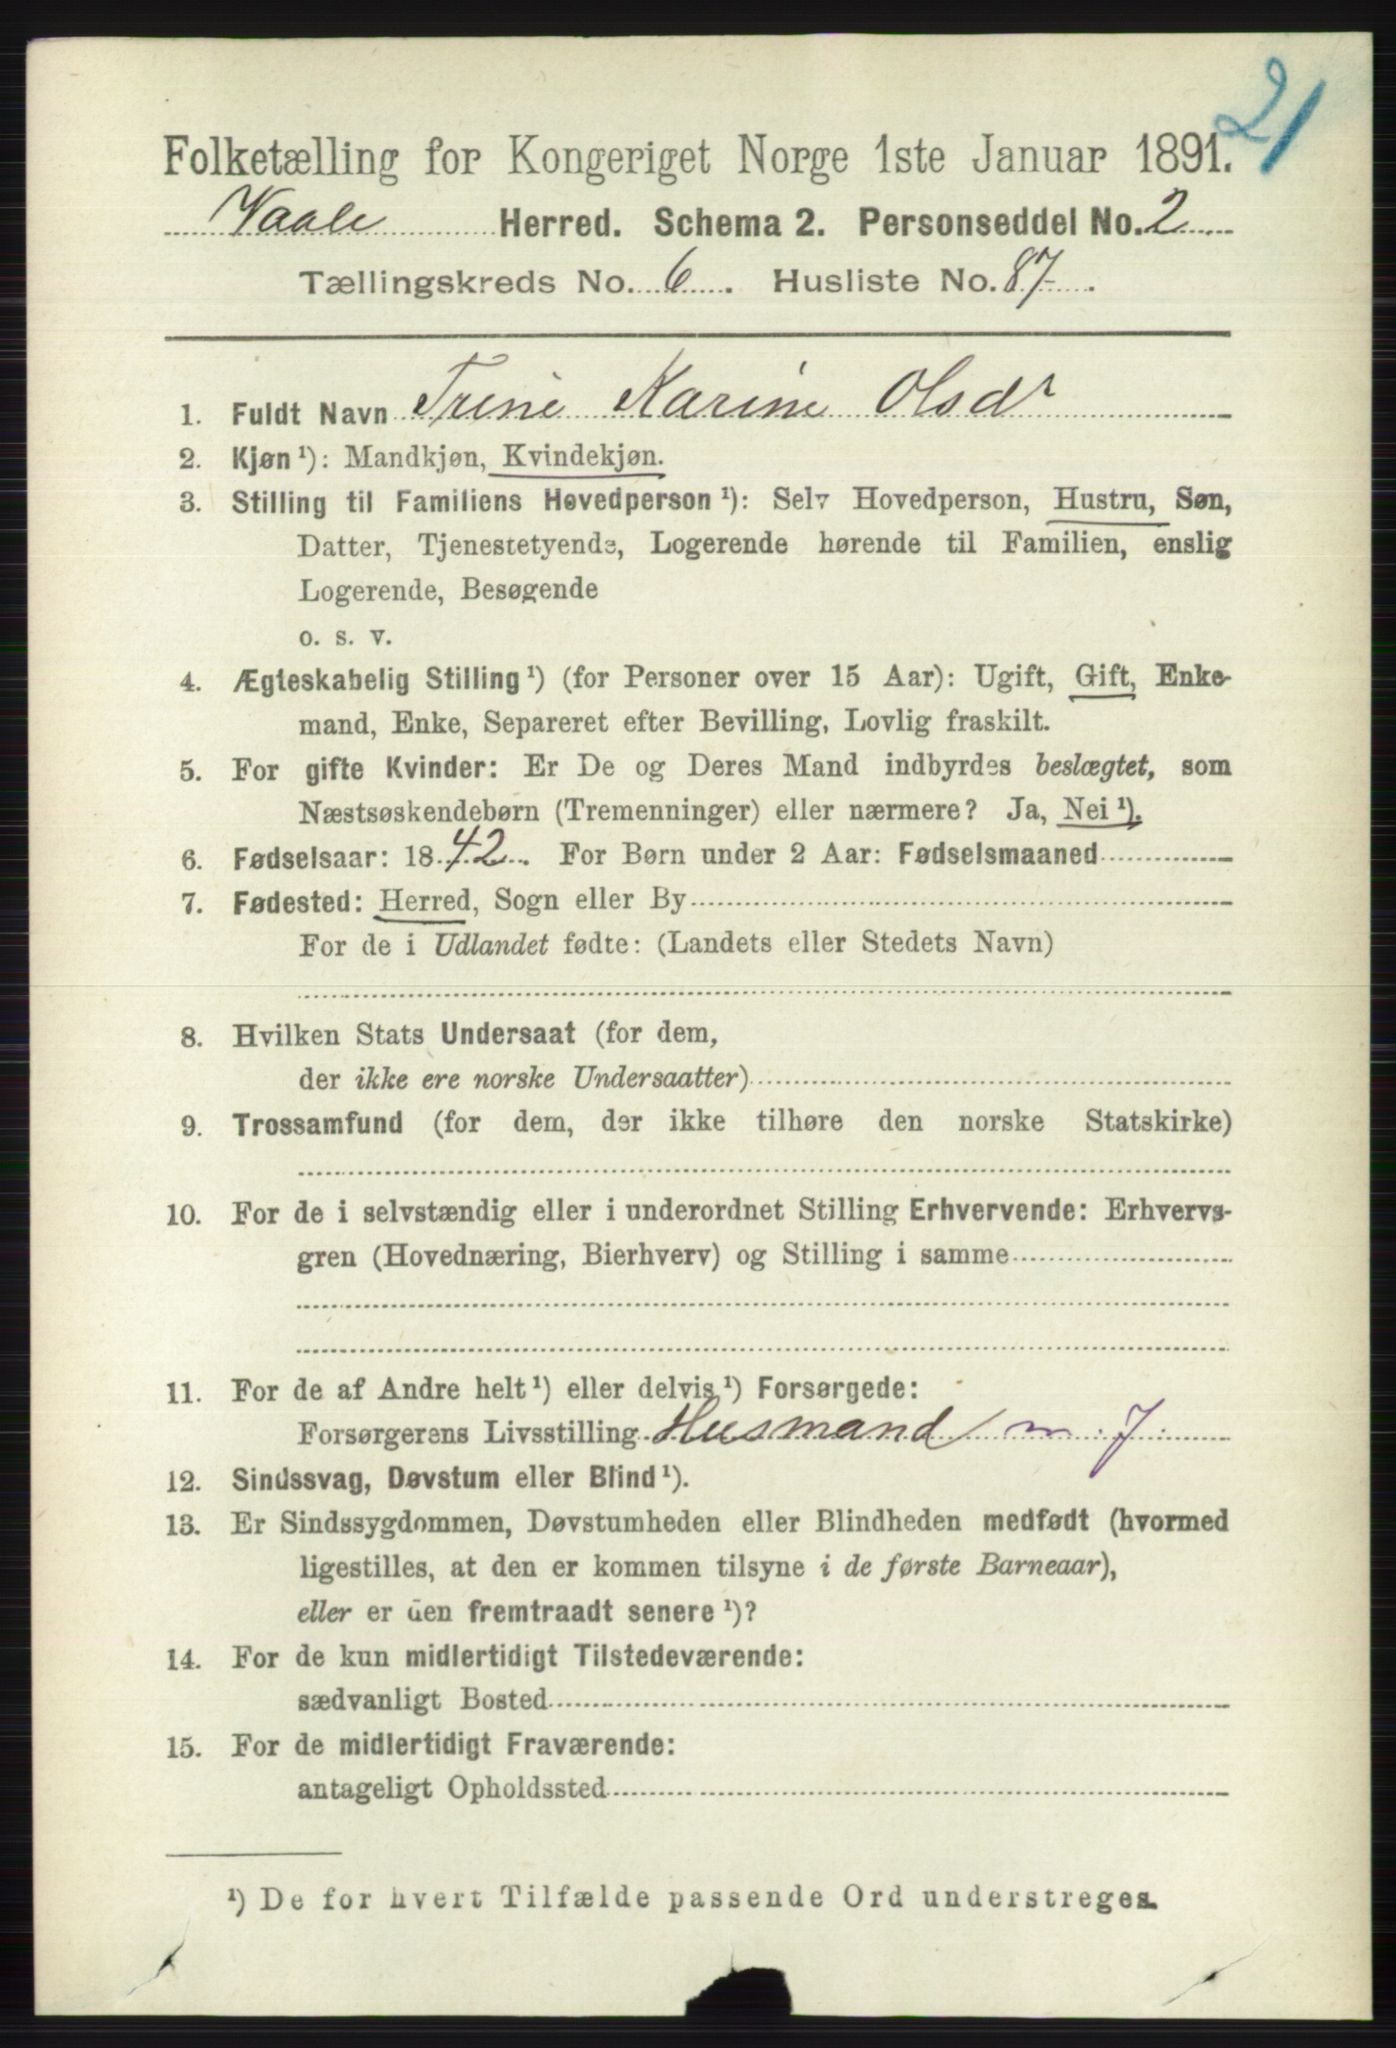 21
Folketælling for Kongeriget Norge 1ste Januar 1891.
Vaale Herred. Schema 2. Personseddel No. 2
Tællingskreds No. 6. Husliste No. 87.
1. Fuldt Navn Trine Karine Olsdr
2. Kjøn ¹): Mandkjøn, Kvindekjøn.
3. Stilling til Familiens Hovedperson ¹): Selv Hovedperson, Hustru, Søn,
Datter, Tjenestetyende, Logerende hørende til Familien, enslig
Logerende, Besøgende
o. s. v.
4. Ægteskabelig Stilling ¹) (for Personer over 15 Aar): Ugift, Gift, Enke-
mand, Enke, Separeret efter Bevilling, Lovlig fraskilt.
5. For gifte Kvinder: Er De og Deres Mand indbyrdes beslægtet, som
Næstsøskendebørn (Tremenninger) eller nærmere? Ja, Nei ¹).
6. Fødselsaar: 1842. For Børn under 2 Aar: Fødselsmaaned
7. Fødested: Herred, Sogn eller By
For de i Udlandet fødte: (Landets eller Stedets Navn)
8. Hvilken Stats Undersaat (for dem,
der ikke ere norske Undersaatter)
9. Trossamfund (for dem, der ikke tilhøre den norske Statskirke)
10. For de i selvstændig eller i underordnet Stilling Erhvervende: Erhvervs-
gren (Hovednæring, Bierhverv) og Stilling i samme
11. For de af Andre helt ¹) eller delvis ¹) Forsørgede:
Forsørgerens Livsstilling Husmand m. J.
12. Sindssvag, Døvstum eller Blind ¹).
13. Er Sindssygdommen, Døvstumheden eller Blindheden medfødt (hvormed
ligestilles, at den er kommen tilsyne i de første Barneaar),
eller er den fremtraadt senere ¹)?
14. For de kun midlertidigt Tilstedeværende:
sædvanligt Bosted
15. For de midlertidigt Fraværende:
antageligt Opholdssted
¹) De for hvert Tilfælde passende Ord understreges.